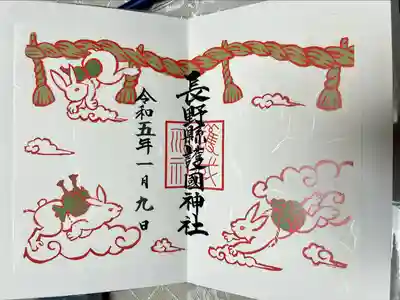 長野縣護國神社
令和五年一月九日